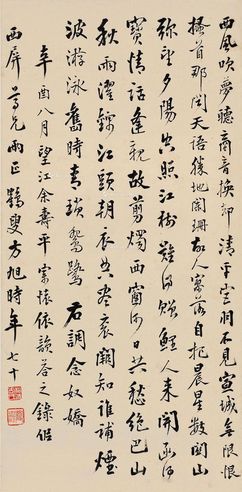 西風吹夢聽商音換卻清平宮羽不見宣城無限恨
搔首那聞天語勝地闌珊故人寥落自把晨星數關山
弥望夕陽空照江樹 難得贈鯉人來開函
寶情話逢親故剪燭西窗何日共愁絕巴山
秋雨濯錦江頭朝衣典盡袞闕知誰補煙
波游泳舊時青瑣鴛鷺 右調念奴嬌
辛酉八月望江余壽平寄懷依韻答之錄似
西屏尊兄雨正 鶴叟方旭時年七十